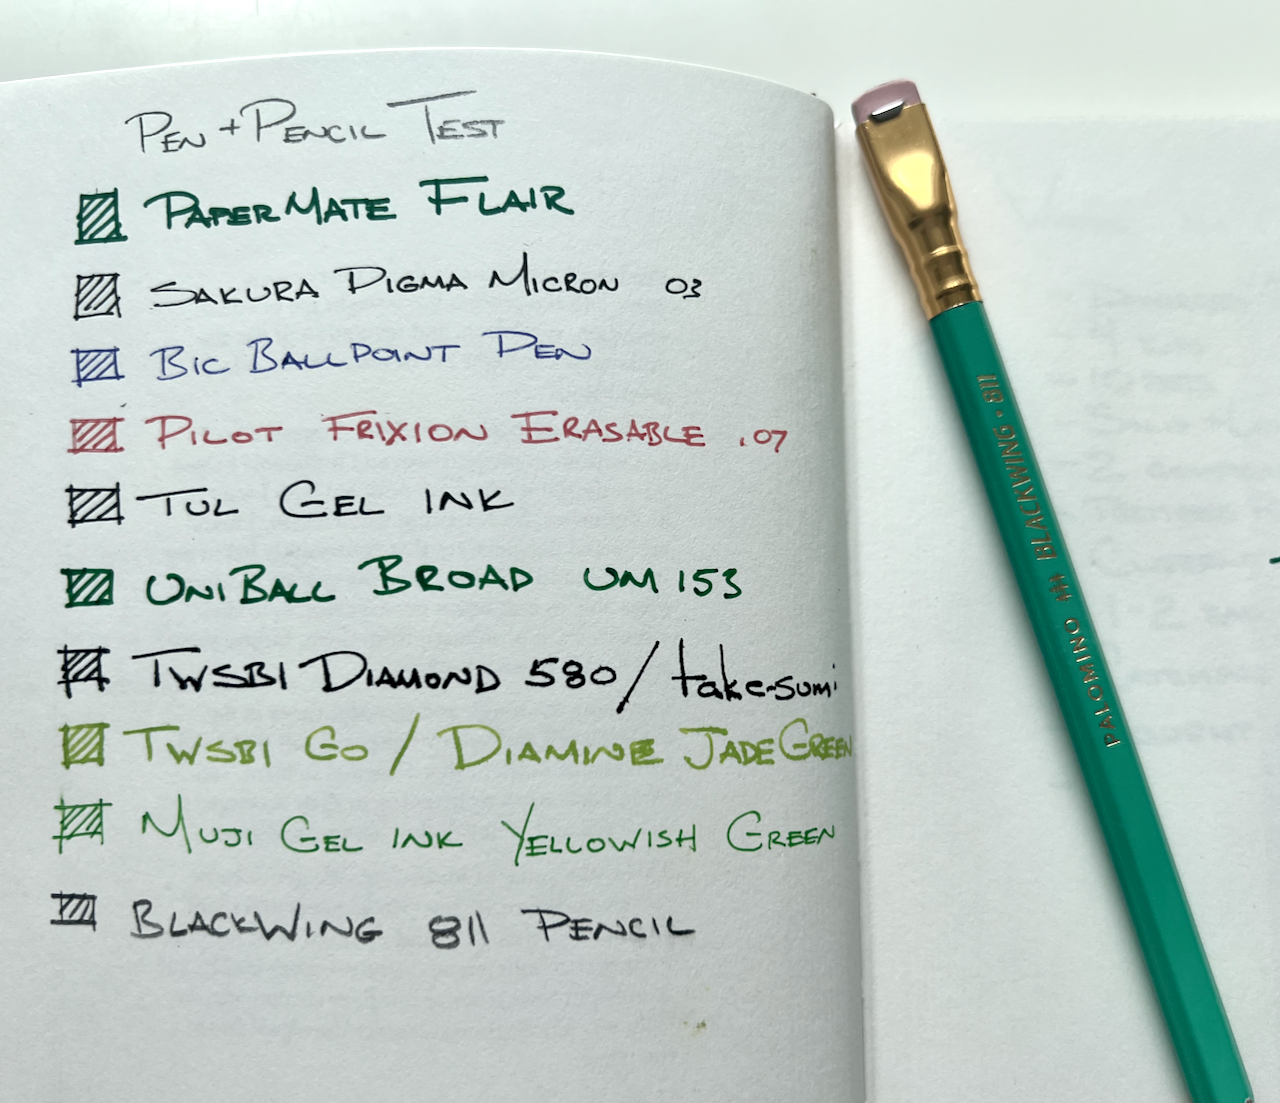 PEN + PENCIL TEST
PAPERMATE FLAIR
SAKURA PIGMA MICRON 03
BIC BALLPOINT PEN
PILOT FRIXION ERASABLE .07
TUL GEL INK
UNIBALL BROAD UM 153
TWSBI DIAMOND 580 / take-sumi
TWSBI GO / DIAMINE JADE GREEN
MUJI GEL INK YELLOWISH GREEN
BLACKWING 811 PENCIL
PALOMINO BLACKWING • 811